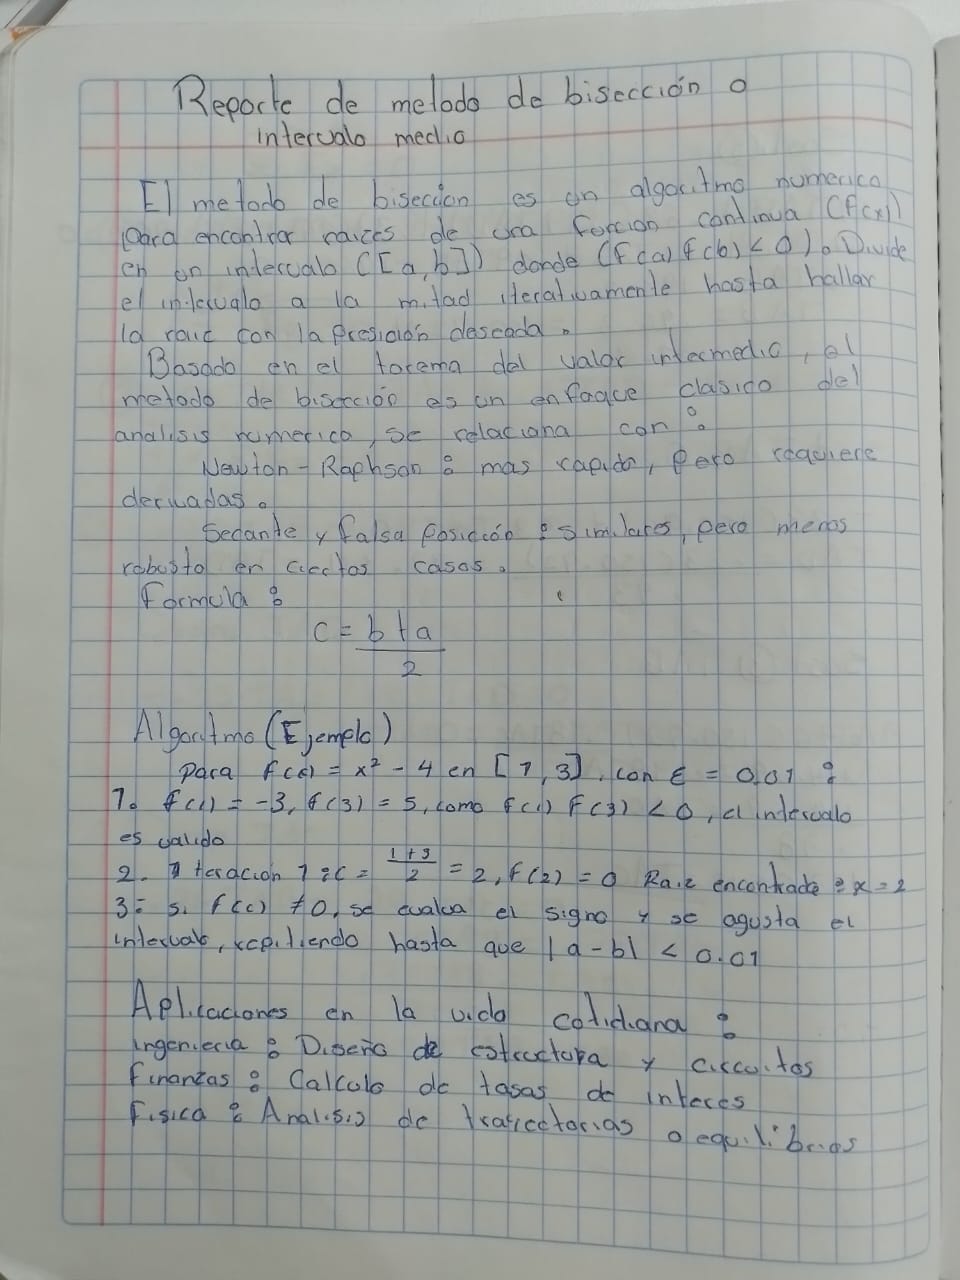 Reporte de metodo de bisección o
intervalo medio
El metodo de biseccion es un algoritmo numerico
para encontrar raices de una forcion continua (f(x))
en un intervalo ([a,b]) donde (f(a) f(b) < 0). Divide
el intervalo a la mitad iterativamente hasta hallar
la raiz con la presición deseada.
Basado en el torema del valor intermedio, el
metodo de bisección es un enfoque clasico del
analisis numerico, se relaciona con:
Newton-Raphson: mas rapido, pero requiere
derivadas.
Secante y falsa posición: similares, pero menos
robusto en ciertos casos.
Formula:
c = b+a
2
Algoritmo (Ejemplo)
Para f(x) = x² - 4 en [1,3], con ε = 0,01:
1. f(1) = -3, f(3) = 5, como f(1) f(3) < 0, el intervalo
es valido
2. Iteración 1: c = 1+3/2 = 2, f(2) = 0 Raiz encontrada: x = 2
3: si f(c) ≠ 0, se evalua el signo y se agusta el
intervalo, repitiendo hasta que |a-b| < 0.01
Aplicaciones en la vida cotidiana:
Ingenieria: Diseño de estructura y circuitos
Finanzas: Calculo de tasas de interes
Fisica: Analisis de traficctorias o equilibrios